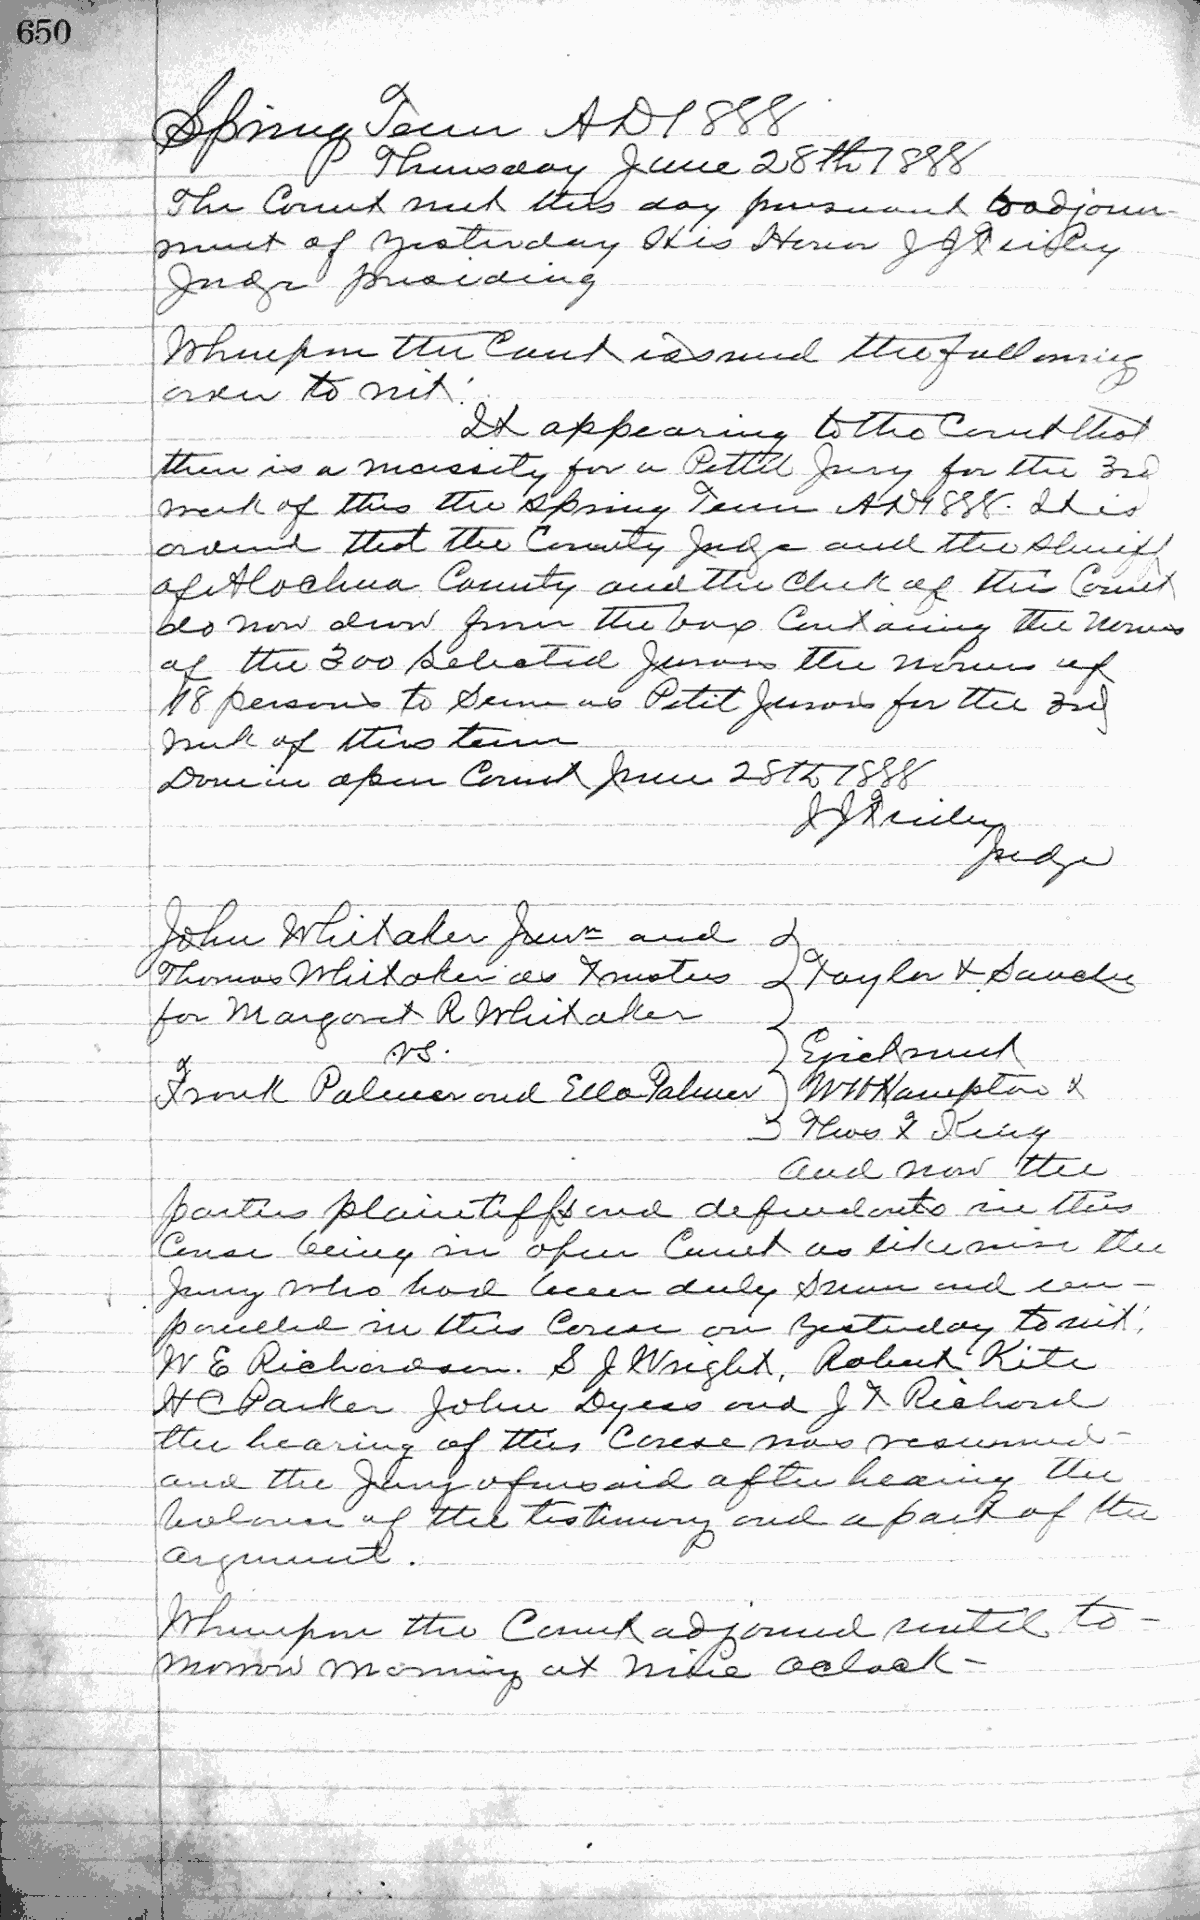 650
Spring Term AD 1888
Thursday June 28th 1888
The Court met this day pursuant to adjourn-
ment of yesterday His Honor J J Finley
Judge presiding
Whereupon the Court issued the following
order to wit:
It appearing to the Court that
there is a necessity for a Pettit Jury for the 3rd
week of this the Spring Term AD 1888. It is
ordered that the County Judge and the Sheriff
of Alachua County and the Clerk of this Court
do now draw from the box Containing the Names
of the 300 Selected Jurors the names of
18 persons to Serve as Petit Jurors for the 3rd
week of this term
Done in open Court June 28th 1888
J J Finley
Judge
John Whitaker and
Thomas Whitaker as Trustees
for Margaret R Whitaker
vs.
Frank Palmer and Ella Palmer
Taylor & Sanchez
Ejectment
W W Hampton &
Thos F King
and now the
parties plaintiffs and defendants in this
Cause being in open Court as likewise the
Jury who had been duly Sworn and em-
panelled in this Cause on yesterday to wit:
W E Richardson. S J Wright, Robert Kite
H C Parker John Dyess and J F Richard
the hearing of this Cause was resumed-
and the Jury aforesaid after hearing the
balance of the testimony and a part of the
argument.
Whereupon the Court adjourned until to-
morrow morning at nine oclock-